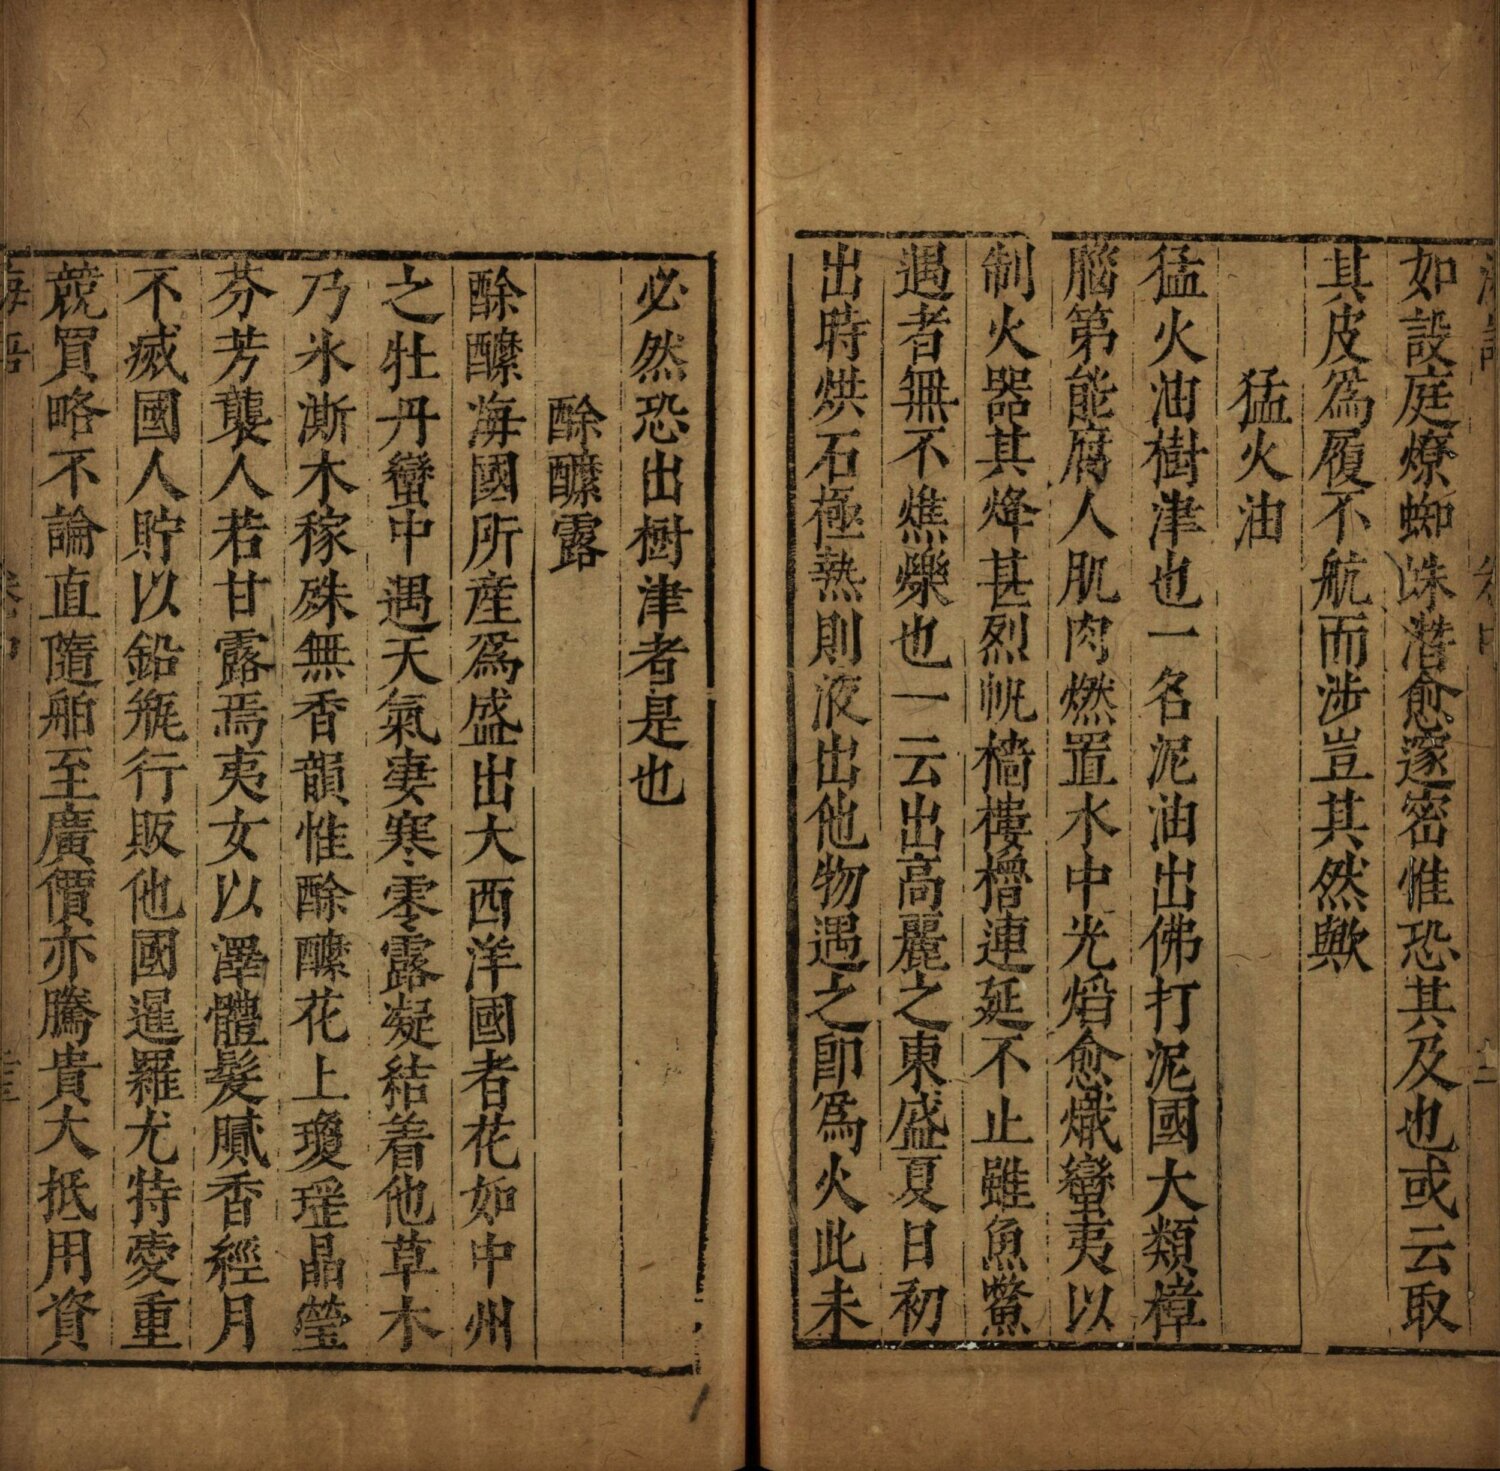 如設庭燎蜘蛛潛愈邃密惟恐其及也或云取
其皮爲履不航而涉豈其然歟
猛火油
猛火油樹津也一名泥油出佛打泥國大類樟
腦第能腐人肌肉燃置水中光焰愈熾蠻夷以
制火器其烽甚烈帆檣樓櫓連延不止雖魚鱉
遇者無不燋爍也一云出高麗之東盛夏日初
出時烘石極熱則液出他物遇之卽爲火此未
必然恐出樹津者是也
酴醾露
酴醾海國所産爲盛出大西洋國者花如中州
之牡丹蠻中遇天氣凄寒零露凝結着他草木
乃氷澌木稼殊無香韻惟酴醾花上瓊瑶晶瑩
芬芳襲人若甘露焉夷女以澤體髮膩香經月
不滅國人貯以鉛瓶行販他國暹羅尤特愛重
競買略不論直隨舶至廣價亦騰貴大抵用資